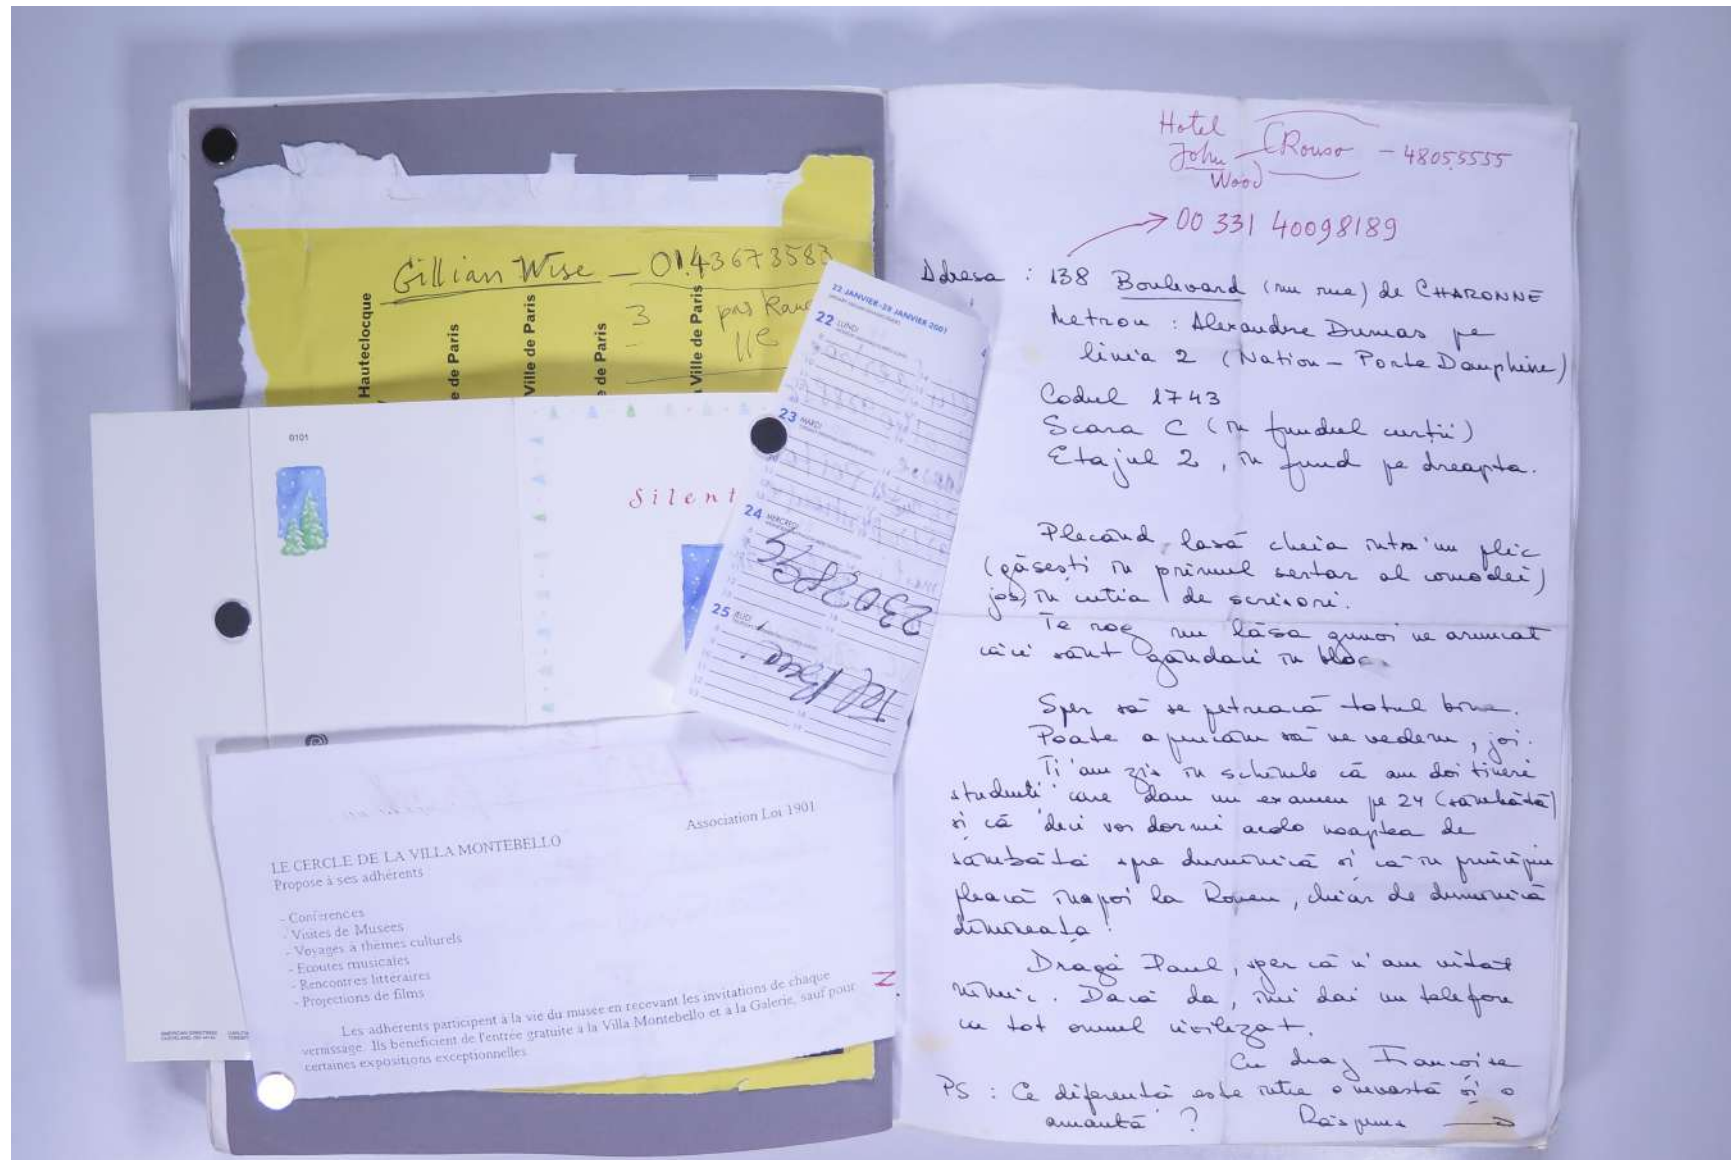 Gillian Wise — 01.43673583
3 pas
11e
Hauteclocque
e de Paris
Ville de Paris
e de Paris
Ville de Paris
0101
Silent
22 JANVIER-28 JANVIER 2001
22 LUNDI
23 MARDI
24 MERCREDI
23028896
25 JEUDI
Tel
Association Loi 1901
LE CERCLE DE LA VILLA MONTEBELLO
Propose à ses adhérents
- Conférences
- Visites de Musées
- Voyages à thèmes culturels
- Ecoutes musicales
- Rencontres littéraires
- Projections de films
Les adhérents participent à la vie du musée en recevant les invitations de chaque
vernissage. Ils bénéficient de l'entrée gratuite à la Villa Montebello et à la Galerie, sauf pour
certaines expositions exceptionnelles.
Hotel
John — Rouso — 48055555
Wood
00 331 40098189
Adresa : 138 Boulevard (nu rue) de CHARONNE
Metrou : Alexandre Dumas pe
linia 2 (Nation - Porte Dauphine)
Codul 1743
Scara C (în fundul curții)
Etajul 2, în fund pe dreapta.
Plecând, lasă cheia într'un plic
(găsești în primul sertar al comodei)
jos, în cutia de scrisori.
Te rog nu lăsa gunoi ne aruncat
căci sânt gândaci în bloc.
Sper să se petreacă totul bine.
Poate apucăm să ne vedem, joi.
Ti'am zis în schimb că am doi tineri
studenți care dau un examen pe 24 (sâmbătă)
și că deci vor dormi acolo noaptea de
sâmbătă spre duminică și că în principiu
pleacă înapoi la Rouen, chiar de duminică
dimineața!
Dragă Paul, sper că n'am uitat
nimic. Dacă da, îmi dai un telefon
ca tot omul civilizat.
Cu drag Francoise
PS : Ce diferență este între o nevastă și o
amantă ? Răspuns →